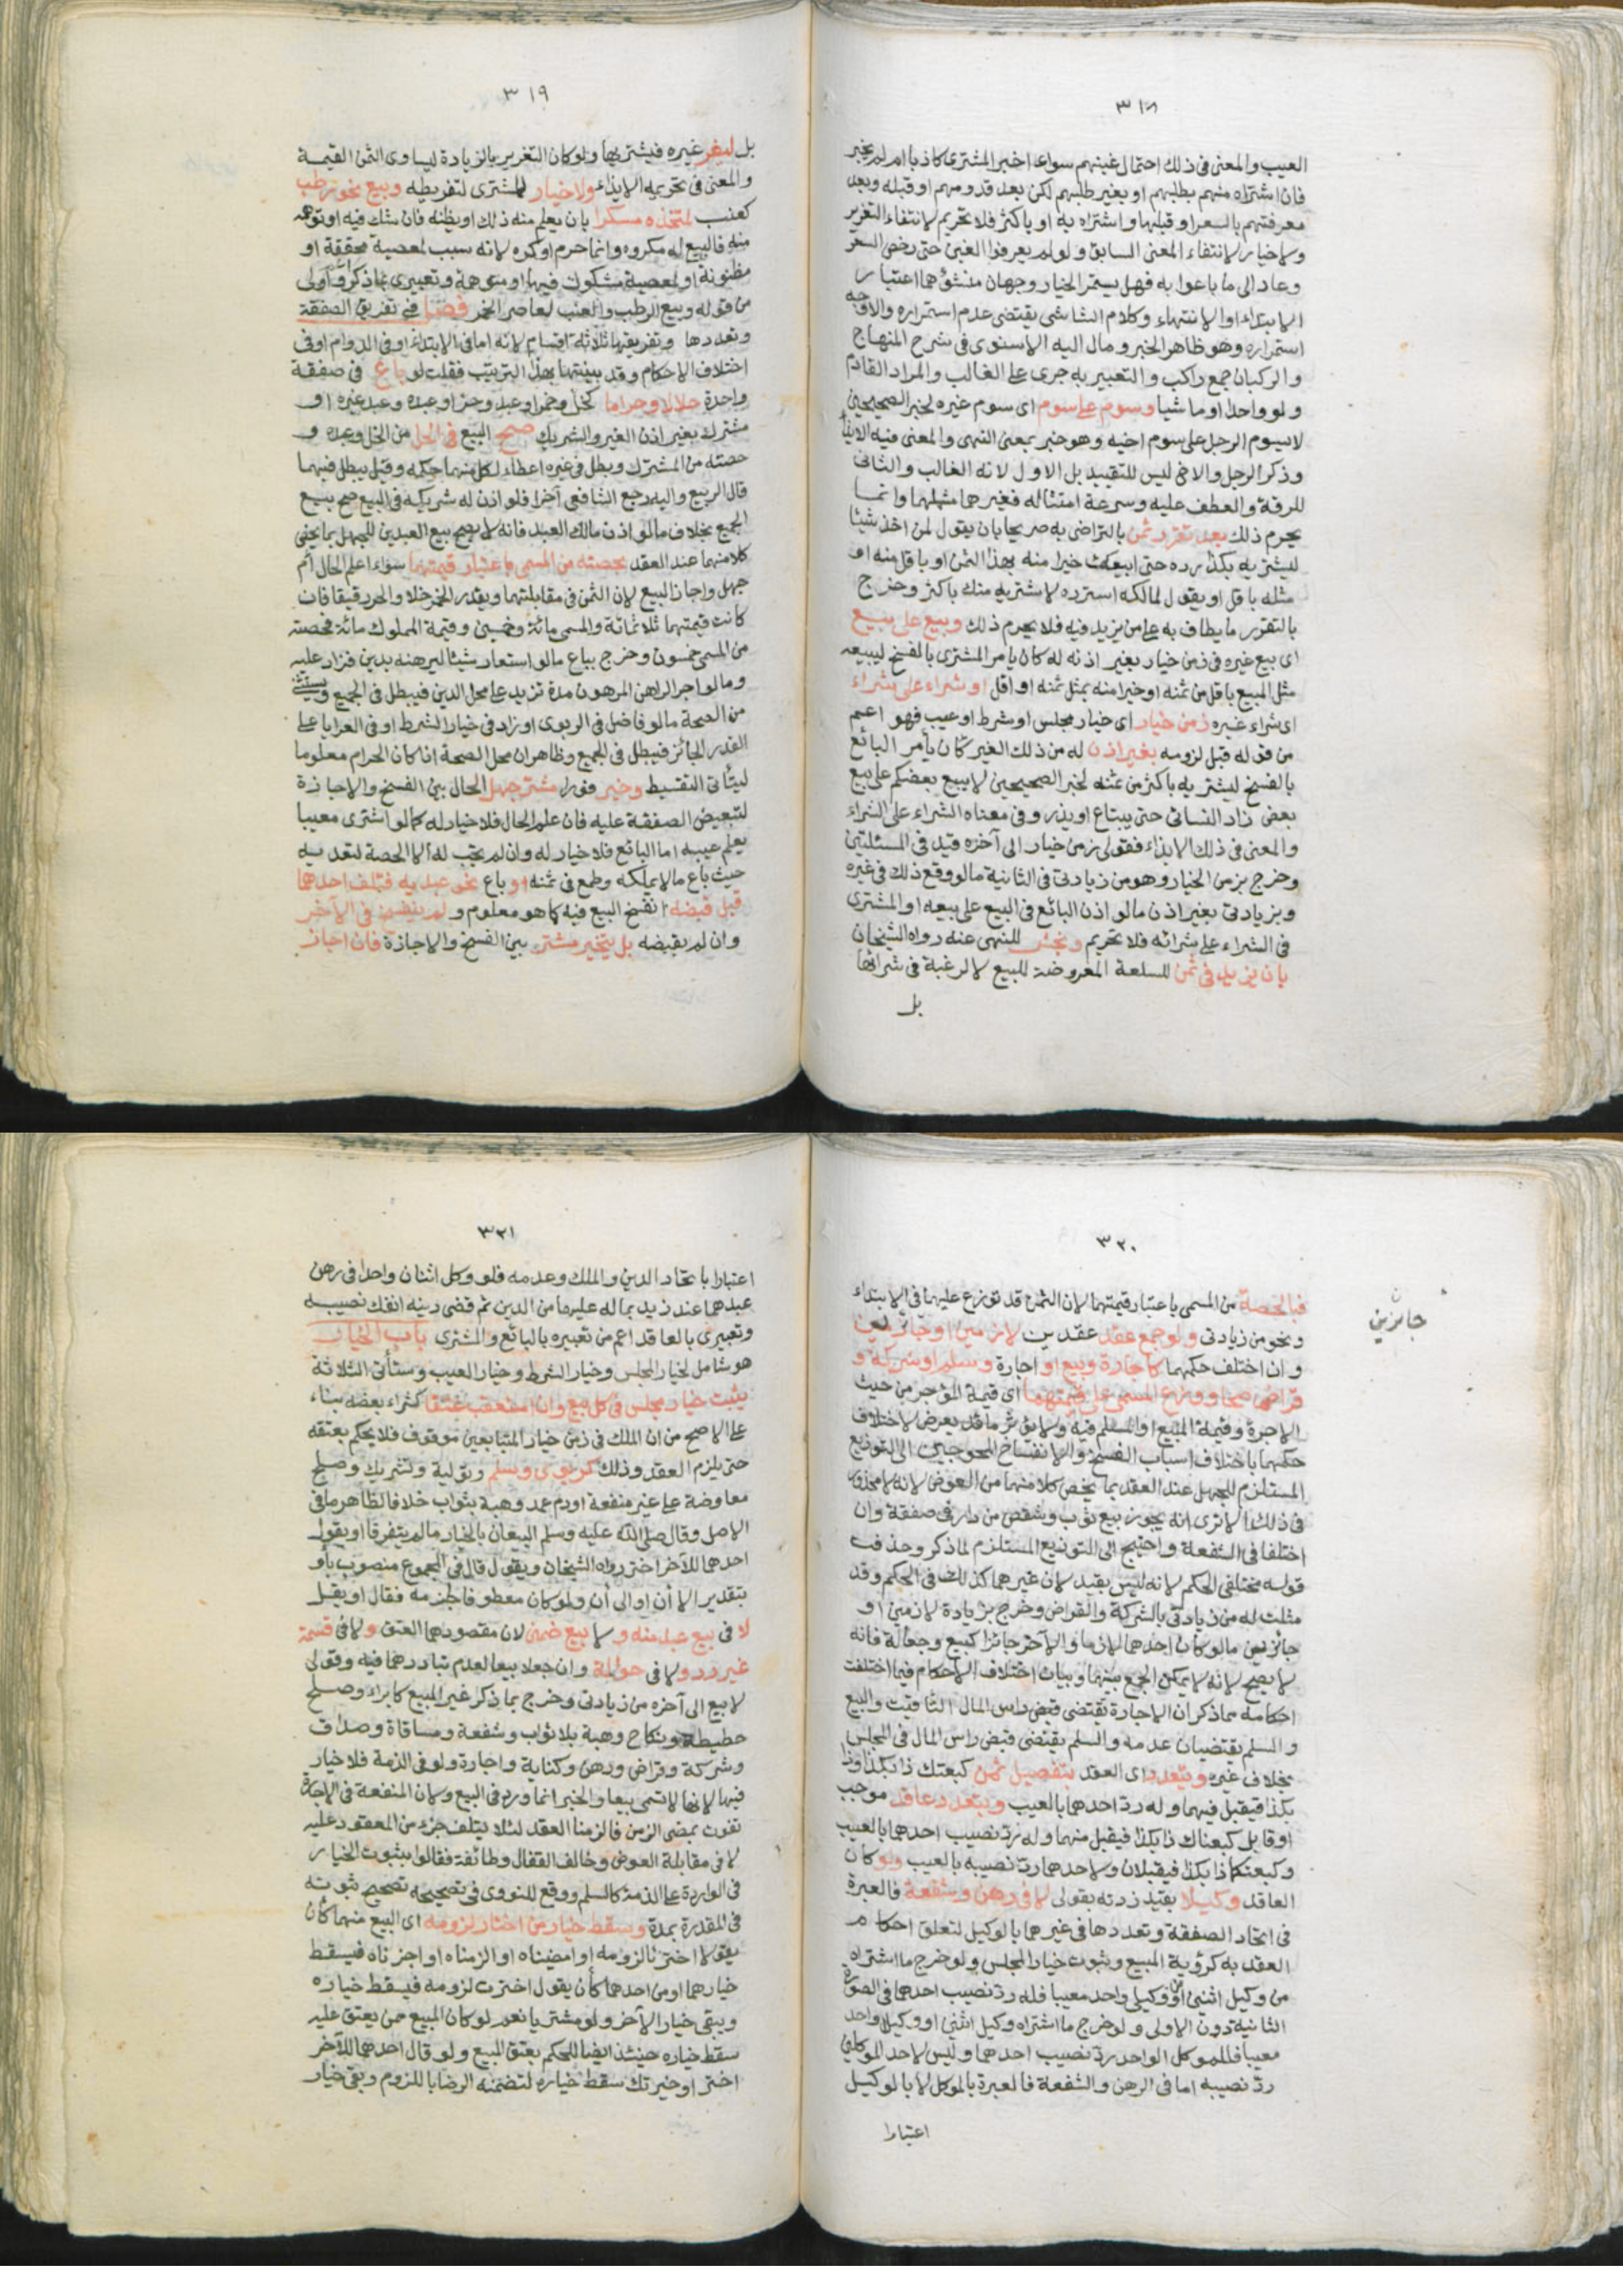 ٣١٨
العيب والمعنى فى ذلك احتمال غبنهم سواء اخبر المشترى كاذبا ام لم يخبر
فان اشتراه منهم بطلبهم او بغير طلبهم لكن بعد قدومهم او قبله وبعد
معرفتهم بالسعر او قبلها واشتراه به او باكثر فلا تحريم لانتفاء التغرير
ولا خيار لانتفاء المعنى السابق ولو لم يعرفوا الغبن حتى رخص السعر
وعاد الى ما باعوا به فهل يستمر الخيار وجهان منشؤهما اعتبار
الابتداء او الانتهاء وكلام الشاشى يقتضى عدم استمراره والاوجه
استمراره وهو ظاهر الخبر ومال اليه الاسنوى فى شرح المنهاج
والركبان جمع راكب والتعبير به جرى على الغالب والمراد القادم
ولو واحدا او ماشيا وسوم على سوم اى سوم غيره لخبر الصحيحين
لا يسوم الرجل على سوم اخيه وهو خبر بمعنى النهى والمعنى فيه الايذاء
وذكر الرجل والاخ ليس للتقييد بل الاول لانه الغالب والثانى
للرقة والعطف عليه وسرعة امتثاله فغيرهما مثلهما وانما
يحرم ذلك بعد تقرر ثمن بالتراضى به صريحا بان يقول لمن اخذ شيئا
ليشتريه بكذا رده حتى ابيعك خيرا منه بهذا الثمن او باقل منه او
مثله باقل او يقول لمالكه استرده لاشتريه منك باكثر وخرج
بالتقرر ما يطاف به على من يزيد فيه فلا يحرم ذلك وبيع على بيع
اى بيع غيره فى زمن خيار بغير اذنه له كان يامر المشترى بالفسخ ليبيعه
مثل المبيع باقل من ثمنه او خيرا منه بمثل ثمنه او اقل او شراء على شراء
اى شراء غيره زمن خيار اى خيار مجلس او شرط او عيب فهو اعم
من قوله قبل لزومه بغير اذن له من ذلك الغير كان يأمر البائع
بالفسخ ليشتريه باكثر من ثمنه لخبر الصحيحين لا يبيع بعضكم على بيع
بعض زاد النسائى حتى يبتاع او يذر وفى معناه الشراء على الشراء
والمعنى فى ذلك الايذاء فقولى زمن خيار الى آخره قيد فى المسئلتين
وخرج بزمن الخيار وهو من زيادتى فى الثانية ما لو وقع ذلك فى غيره
وبزيادتى بغير اذن ما لو اذن البائع فى البيع على بيعه او المشترى
فى الشراء على شرائه فلا تحريم ونجش للنهى عنه رواه الشيخان
بان يزيد فى ثمن للسلعة المعروضة للبيع لا لرغبة فى شرائها
بل
٣١٩
بل ليغر غيره فيشتريها ولو كان التغرير بالزيادة ليساوى الثمن القيمة
والمعنى فى تحريمه الايذاء ولا خيار للمشترى لتفريطه وبيع نحو رطب
كعنب لمتخذه مسكرا بان يعلم منه ذلك او يظنه فان شك فيه او توهمه
منه فالبيع له مكروه وانما حرم او كره لانه سبب لمعصية محققة او
مظنونة او لمعصية مشكوك فيها او متوهمة وتعبيرى بما ذكر اولى
من قوله وبيع الرطب والعنب لعاصر الخمر فصل فى تفريق الصفقة
وتعددها وتفريقها ثلاثة اقسام لانه اما فى الابتداء او فى الدوام او فى
اختلاف الاحكام وقد بينتها بهذا الترتيب فقلت لو باع فى صفقة
واحدة حلالا وحراما كخل وخمر او عبد وحر او عبده وعبد غيره او
مشترك بغير اذن الغير والشريك صح البيع فى الحل من الخل وعبده و
حصته من المشترك وبطل فى غيره اعطاء لكل منهما حكمه وقيل يبطل فيهما
قال الربيع واليه رجع الشافعى آخرا فلو اذن له شريكه فى البيع صح بيع
الجميع بخلاف ما لو اذن مالك العبد فانه لا يصح بيع العبدين للجهل بما يخص
كلا منهما عند العقد بحصته من المسمى باعتبار قيمتهما سواء اعلم الحال ام
جهل واجاز البيع لان الثمن فى مقابلتهما ويقدر الخمر خلا والحر رقيقا فان
كانت قيمتهما ثلاثمائة والمسمى مائة وخمسين وقيمة المملوك مائة فحصته
من المسمى خمسون وخرج بباع ما لو استعار شيئا ليرهنه بدين فزاد عليه
وما لو اجر الراهن المرهون مدة تزيد على محل الدين فيبطل فى الجميع ويستثنى
من الصحة ما لو فاضل فى الربوى او زاد فى خيار الشرط او فى العرايا على
القدر الجائز فيبطل فى الجميع وظاهر ان محل الصحة اذا كان الحرام معلوما
ليتأتى التقسيط وخير فورا مشتر جهل الحال بين الفسخ والاجازة
لتبعيض الصفقة عليه فان علم الحال فلا خيار له كما لو اشترى معيبا
يعلم عيبه اما البائع فلا خيار له وان لم يجب له الا الحصة لتعديه
حيث باع ما لا يملكه وطمع فى ثمنه او باع نحو عبديه فتلف احدهما
قبل قبضه انفسخ البيع فيه كما هو معلوم ولم ينفسخ فى الآخر
وان لم يقبضه بل يتخير مشتر بين الفسخ والاجازة فان اجاز
٣٢٠
فبالحصة من المسمى باعتبار قيمتهما لان الثمن قد توزع عليهما فى الابتداء
ونحو من زيادتى ولو جمع عقد عقدين لازمين او جائزين
جائزين
وان اختلف حكمهما كاجارة وبيع او اجارة وسلم او شركة و
قراض صحا ووزع المسمى على قيمتهما اى قيمة المؤجر من حيث
الاجرة وقيمة المبيع او المسلم فيه ولا يؤثر ما قد يعرض لاختلاف
حكمهما باختلاف اسباب الفسخ والانفساخ المحوجين الى التوزيع
المستلزم للجهل عند العقد بما يخص كلا منهما من العوض لانه لا محذور
فى ذلك الا ترى انه يجوز بيع ثوب وشقص من دار فى صفقة وان
اختلفا فى الشفعة واحتيج الى التوزيع المستلزم لما ذكر وحذفت
قوله مختلفى الحكم لانه ليس بقيد لان غيرهما كذلك فى الحكم وقد
مثلت له من زيادتى بالشركة والقراض وخرج بزيادة لازمين او
جائزين ما لو كان احدهما لازما والآخر جائزا كبيع وجعالة فانه
لا يصح لانه لا يمكن الجمع بينهما وبيان اختلاف الاحكام فيما اختلفت
احكامه مما ذكر ان الاجارة تقتضى قبض راس المال التاقيت والبيع
والسلم يقتضيان عدمه والسلم يقتضى قبض راس المال فى المجلس
بخلاف غيره ويتعدد اى العقد بتفصيل ثمن كبعتك ذا بكذا وذا
بكذا فيقبل فيهما وله رد احدهما بالعيب وبتعدد عاقد موجب
او قابل كبعناك ذا بكذا فيقبل منهما وله رد نصيب احدهما بالعيب
وكبعتكما ذا بكذا فيقبلان ولاحدهما رد نصيبه بالعيب ولو كان
العاقد وكيلا بقيد زدته بقولى لا فى رهن وشفعة فالعبرة
فى اتحاد الصفقة وتعددها فى غيرهما بالوكيل لتعلق احكام
العقد به كرؤية المبيع وثبوت خيار المجلس ولو خرج ما اشتراه
من وكيل اثنين او من وكيلى واحد معيبا فله رد نصيب احدهما فى الصورة
الثانية دون الاولى ولو خرج ما اشتراه وكيل اثنين او وكيلا واحد
معيبا فللموكل الواحد رد نصيب احدهما وليس لاحد الموكلين
رد نصيبه اما فى الرهن والشفعة فالعبرة بالموكل لا بالوكيل
اعتبارا
٣٢١
اعتبارا باتحاد الدين والملك وعدمه فلو وكل اثنان واحدا فى رهن
عبدهما عند زيد بما له عليهما من الدين ثم قضى دينه انفك نصيبه
وتعبيرى بالعاقد اعم من تعبيره بالبائع والمشترى باب الخيار
هو شامل لخيار المجلس وخيار الشرط وخيار العيب وستأتى الثلاثة
يثبت خيار مجلس فى كل بيع وان استعقب عتقا كشراء بعضه بناء
على الاصح من ان الملك فى زمن خيار المتبايعين موقوف فلا يحكم بعتقه
حتى يلزم العقد وذلك كربوى وسلم وتولية وتشريك وصلح
معاوضة على غير منفعة او دم عمد وهبة بثواب خلافا لظاهر ما فى
الاصل وقال صلى الله عليه وسلم البيعان بالخيار ما لم يتفرقا او يقول
احدهما للآخر اختر رواه الشيخان ويقول قال فى المجموع منصوب بأو
بتقدير الا أن او الى أن ولو كان معطوفا لجزمه فقال او يقل
لا فى بيع عبد منه ولا بيع ضمنى لان مقصودهما العتق ولا فى قسمة
غير رد ولا فى حوالة وان جعلا بيعا لعدم تبادرهما فيه وقولى
لا بيع الى آخره من زيادتى وخرج بما ذكر غير المبيع كابراء وصلح
حطيطة ونكاح وهبة بلا ثواب وشفعة ومساقاة وصداق
وشركة وقراض ورهن وكتابة واجارة ولو فى الذمة فلا خيار
فيها لانها لا تسمى بيعا والخبر انما ورد فى البيع ولان المنفعة فى الاجارة
تفوت بمضى الزمن فالزمنا العقد لئلا يتلف جزء من المعقود عليه
لا فى مقابلة العوض وخالف القفال وطائفة فقالوا بثبوت الخيار
فى الواردة على الذمة كالسلم ووقع للنووى فى تصحيحه تصحيح ثبوته
فى المقدرة بمدة وسقط خيار من اختار لزومه اى البيع منهما كأن
يقولا اخترنا لزومه او امضيناه او الزمناه او اجزناه فيسقط
خيارهما او من احدهما كأن يقول اخترت لزومه فيسقط خياره
ويبقى خيار الآخر ولو مشتريا نعم لو كان المبيع ممن يعتق عليه
سقط خياره حينئذ ايضا للحكم بعتق المبيع ولو قال احدهما للآخر
اختر او خيرتك سقط خياره لتضمنه الرضا باللزوم وبقى خيار